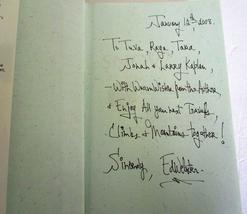 January 12th, 2008.
To Tuva, Raya, Tara,
Jonah & Larry Kaplan,
- With Warm Wishes from the Author
& Enjoy All your next Travels,
Climbs & Mountains together!
Sincerely, Ed Webster